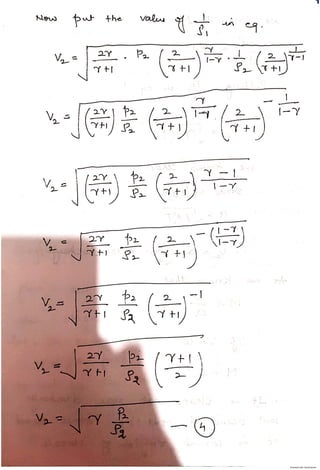 Now put the value of 1/ρ₁ in eq.
V₂ = √( 2γ/(γ+1) · P₂ (2/(γ+1))^(γ/(1-γ)) · 1/ρ₂ (2/(γ+1))^(1/(γ-1)) )
V₂ = √( (2γ/(γ+1)) p₂/ρ₂ (2/(γ+1))^(γ/(1-γ)) · (2/(γ+1))^(-1/(1-γ)) )
V₂ = √( (2γ/(γ+1)) p₂/ρ₂ (2/(γ+1))^((γ-1)/(1-γ)) )
V₂ = √( 2γ/(γ+1) p₂/ρ₂ (2/(γ+1))^(-((1-γ)/(1-γ))) )
V₂ = √( 2γ/(γ+1) p₂/ρ₂ (2/(γ+1))^(-1) )
V₂ = √( 2γ/(γ+1) p₂/ρ₂ ((γ+1)/2) )
V₂ = √( γ P₂/ρ₂ ) — ④